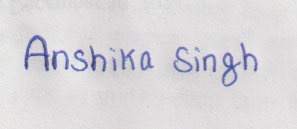 Anshika Singh